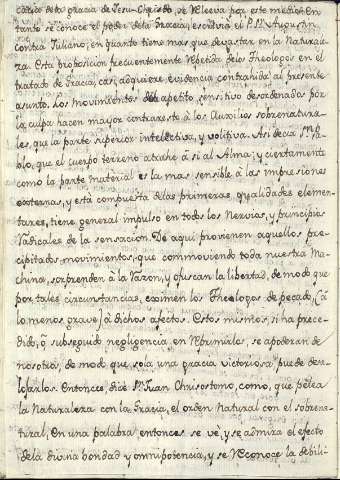 cacia de la gracia de Jesu-Christo, se releva por este medio: En
tanto se conoce el poder de la Gracia, escrivia el P. Sn. Augustin
contra Juliano, en quanto tiene mas que devastar en la Naturale
za. Esta proposicion frecuentemente repetida de los Theologos en el
tratado de Gracia, casi adquiere evidencia contrahida al presente
asunto. Los movimientos del apetito sensitivo desordenados por
la culpa hacen mayor contraresto à los Auxilios sobrenatura-
les, que la parte superior intellectiva, y volitiva. Asi decia Sn. Pa-
blo, que el cuerpo terreno atrahe à si al Alma; y ciertamente
como la parte material es la mas sensible à las impresiones
externas, y está compuesta de las primeras qualidades elemen-
tares, tiene general impulso en todos los Nervios, y principios
radicales de la sensacion. De aqui provienen aquellos pre-
cipitados movimientos, que commoviendo toda nuestra Ma-
china, sorprenden à la razon, y ofuscan la libertad, de modo que
por tales circunstancias, eximen los Theologos de pecado, (à
lo menos grave) à dichos afectos. Estos mismos, si ha prece-
dido, ò subseguido negligencia en reprimirlos, se apoderan de
nosotros, de modo que sola una gracia victoriosa puede desa-
lojarlos. Entonces, dice Sn. Juan Chrisostomo, como, que pelea
la Naturaleza con la Gracia, el orden natural con el sobrena-
tural. En una palabra entonces se vè, y se admira el efecto
de la divina bondad y omnipotencia, y se reconoce la debili-